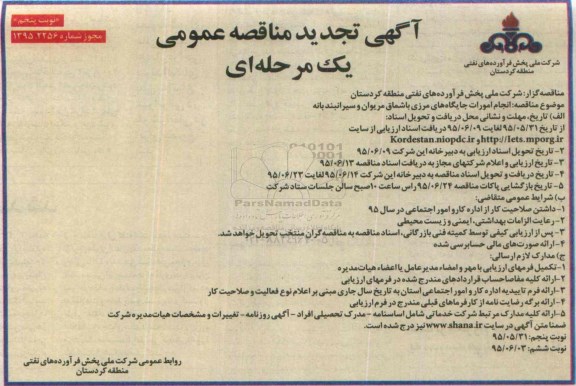 «نوبت پنجم»
مجوز شماره ۱۳۹۵.۲۲۵۶
آگهی تجدید مناقصه عمومی
یک مرحله‌ای
شرکت ملی پخش فرآورده‌های نفتی
منطقه کردستان
مناقصه‌گزار: شرکت ملی پخش فرآورده‌های نفتی منطقه کردستان
موضوع مناقصه: انجام امورات جایگاه‌های مرزی باشماق مریوان و سیرانبند بانه
الف) تاریخ، مهلت و نشانی محل دریافت و تحویل اسناد:
از تاریخ ۹۵/۰۵/۳۱ لغایت ۹۵/۰۶/۰۹ دریافت اسناد ارزیابی از سایت
http://Iets.mporg.ir و Kordestan.niopdc.ir
۲- تاریخ تحویل اسناد ارزیابی به دبیرخانه این شرکت ۹۵/۰۶/۰۹
۳- تاریخ ارزیابی و اعلام شرکتهای مجاز به دریافت اسناد مناقصه ۹۵/۰۶/۱۳
۴- تاریخ دریافت و تحویل اسناد مناقصه به دبیرخانه این شرکت ۹۵/۰۶/۱۴ لغایت ۹۵/۰۶/۲۳
۵- تاریخ بازگشایی پاکات مناقصه ۹۵/۰۶/۲۴ راس ساعت ۱۰ صبح سالن جلسات ستاد شرکت
ب) شرایط عمومی متقاضی:
۱- داشتن صلاحیت کار از اداره کار و امور اجتماعی در سال ۹۵
۲- رعایت الزامات بهداشتی، ایمنی و زیست محیطی
۳- پس از ارزیابی کیفی توسط کمیته فنی بازرگانی، اسناد مناقصه به مناقصه‌گران منتخب تحویل خواهد شد.
۴- ارائه صورت‌های مالی حسابرسی شده
ج) مدارک لازم ارسالی:
۱- تکمیل فرمهای ارزیابی با مهر و امضاء مدیرعامل یا اعضاء هیات‌مدیره
۲- ارائه کلیه مفاصاحساب قراردادهای مندرج شده در فرمهای ارزیابی
۳- ارائه فرم تاییدیه اداره کار و امور اجتماعی استان به تاریخ سال جاری مبنی بر اعلام نوع فعالیت و صلاحیت کار
۴- ارائه برگه رضایت نامه از کارفرماهای قبلی مندرج در فرم ارزیابی
۵- ارائه کلیه مدارک مرتبط شرکت خدماتی شامل اساسنامه - مدرک تحصیلی افراد - آگهی روزنامه - تغییرات و مشخصات هیات‌مدیره شرکت
ضمنا متن آگهی در سایت www.shana.ir نیز درج شده است.
نوبت پنجم: ۹۵/۰۵/۳۱
نوبت ششم: ۹۵/۰۶/۰۳
روابط عمومی شرکت ملی پخش فرآورده‌های نفتی
منطقه کردستان
ParsNamadData